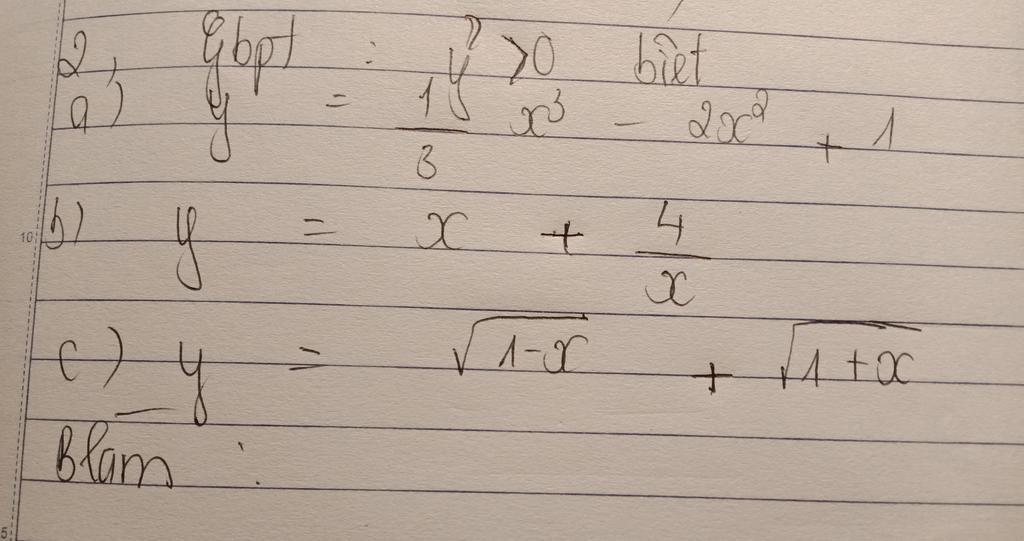 2, Gbpt : y' >0 biết
a) y = 1/3 x³ - 2x² + 1
10
b) y = x + 4/x
c) y = √(1-x) + √(1+x)
Blam :
5